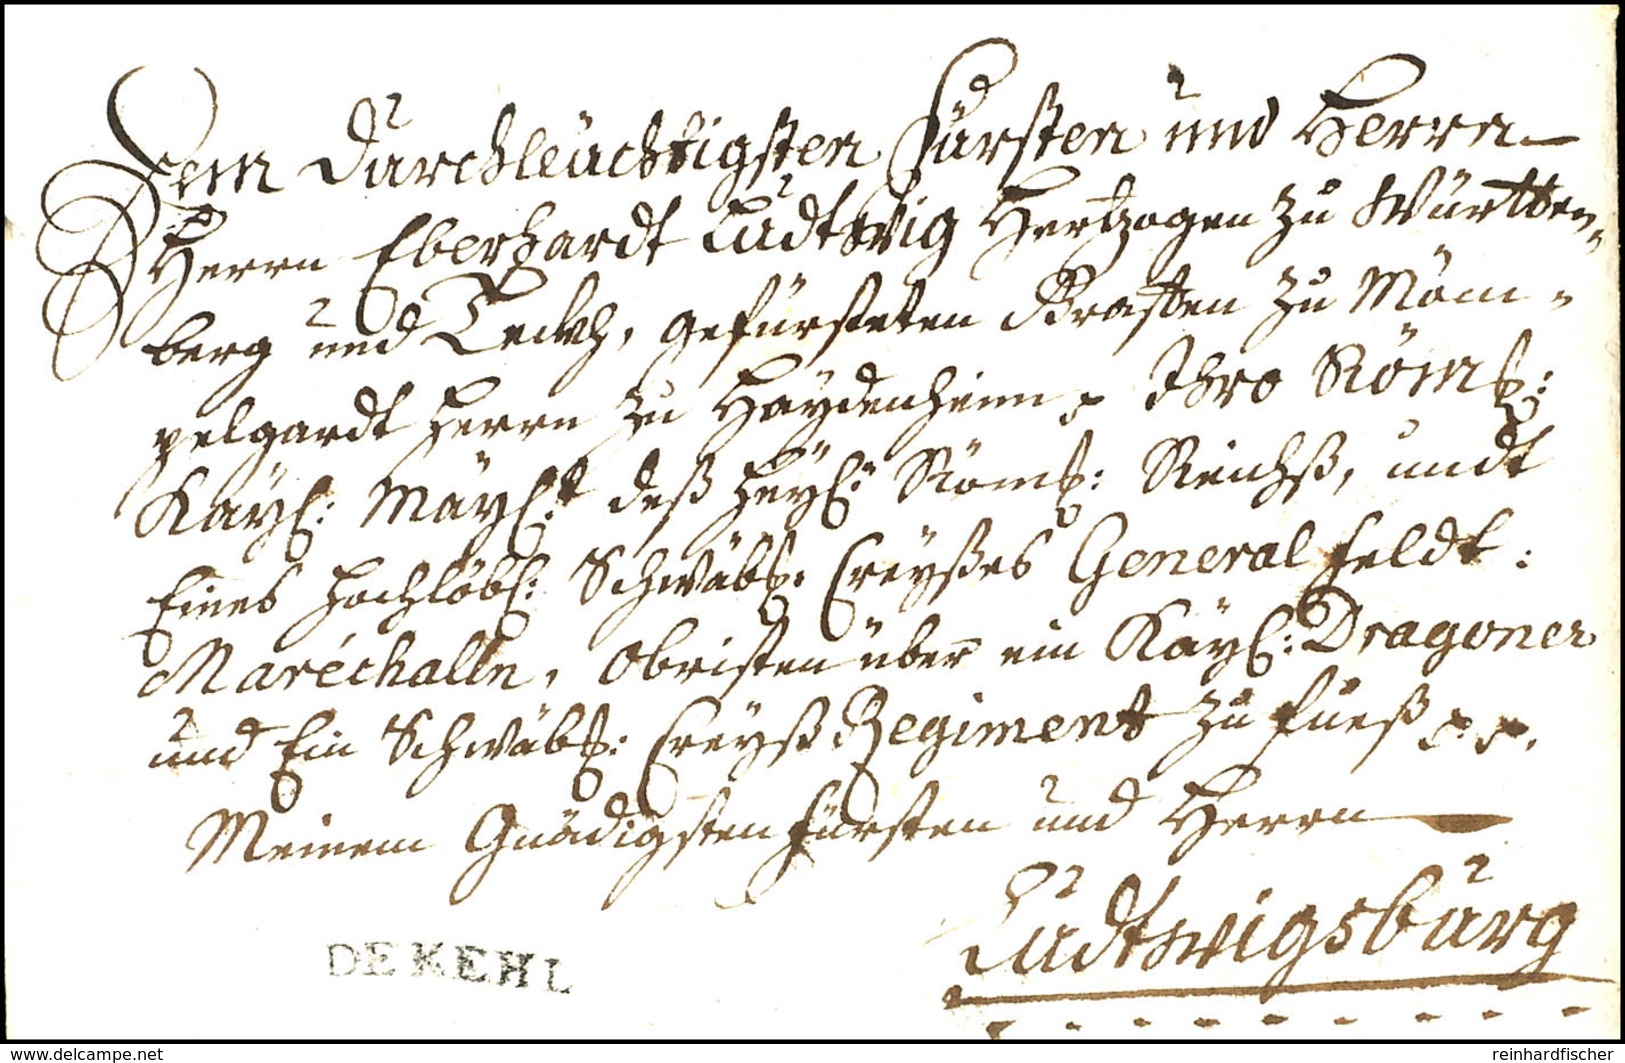 Dem Durchleüchtigsten Fürsten und Herrn
Herrn Eberhardt Ludtwig Hertzogen zu Württen„
berg und Teckh, gefürsteten Graffen zu Möm„
pelgardt Herrn zu Haÿdenheim p Ihro Röms:
Kaÿl: Maÿl:t deß Heÿl: Röms: Reichß, undt
Eines Hochlöbl: Schwäbs: Creÿßes General Feldt:
Maréchalln, Obristen über ein Kaÿl: Dragoner
und Ein Schwäbs: Creÿß Regiment zu Fueß p p.
Meinem Gnädigsten Fürsten und Herrn
Ludtwigsburg
DE KEHL
www.delcampe.net
reinhardfischer